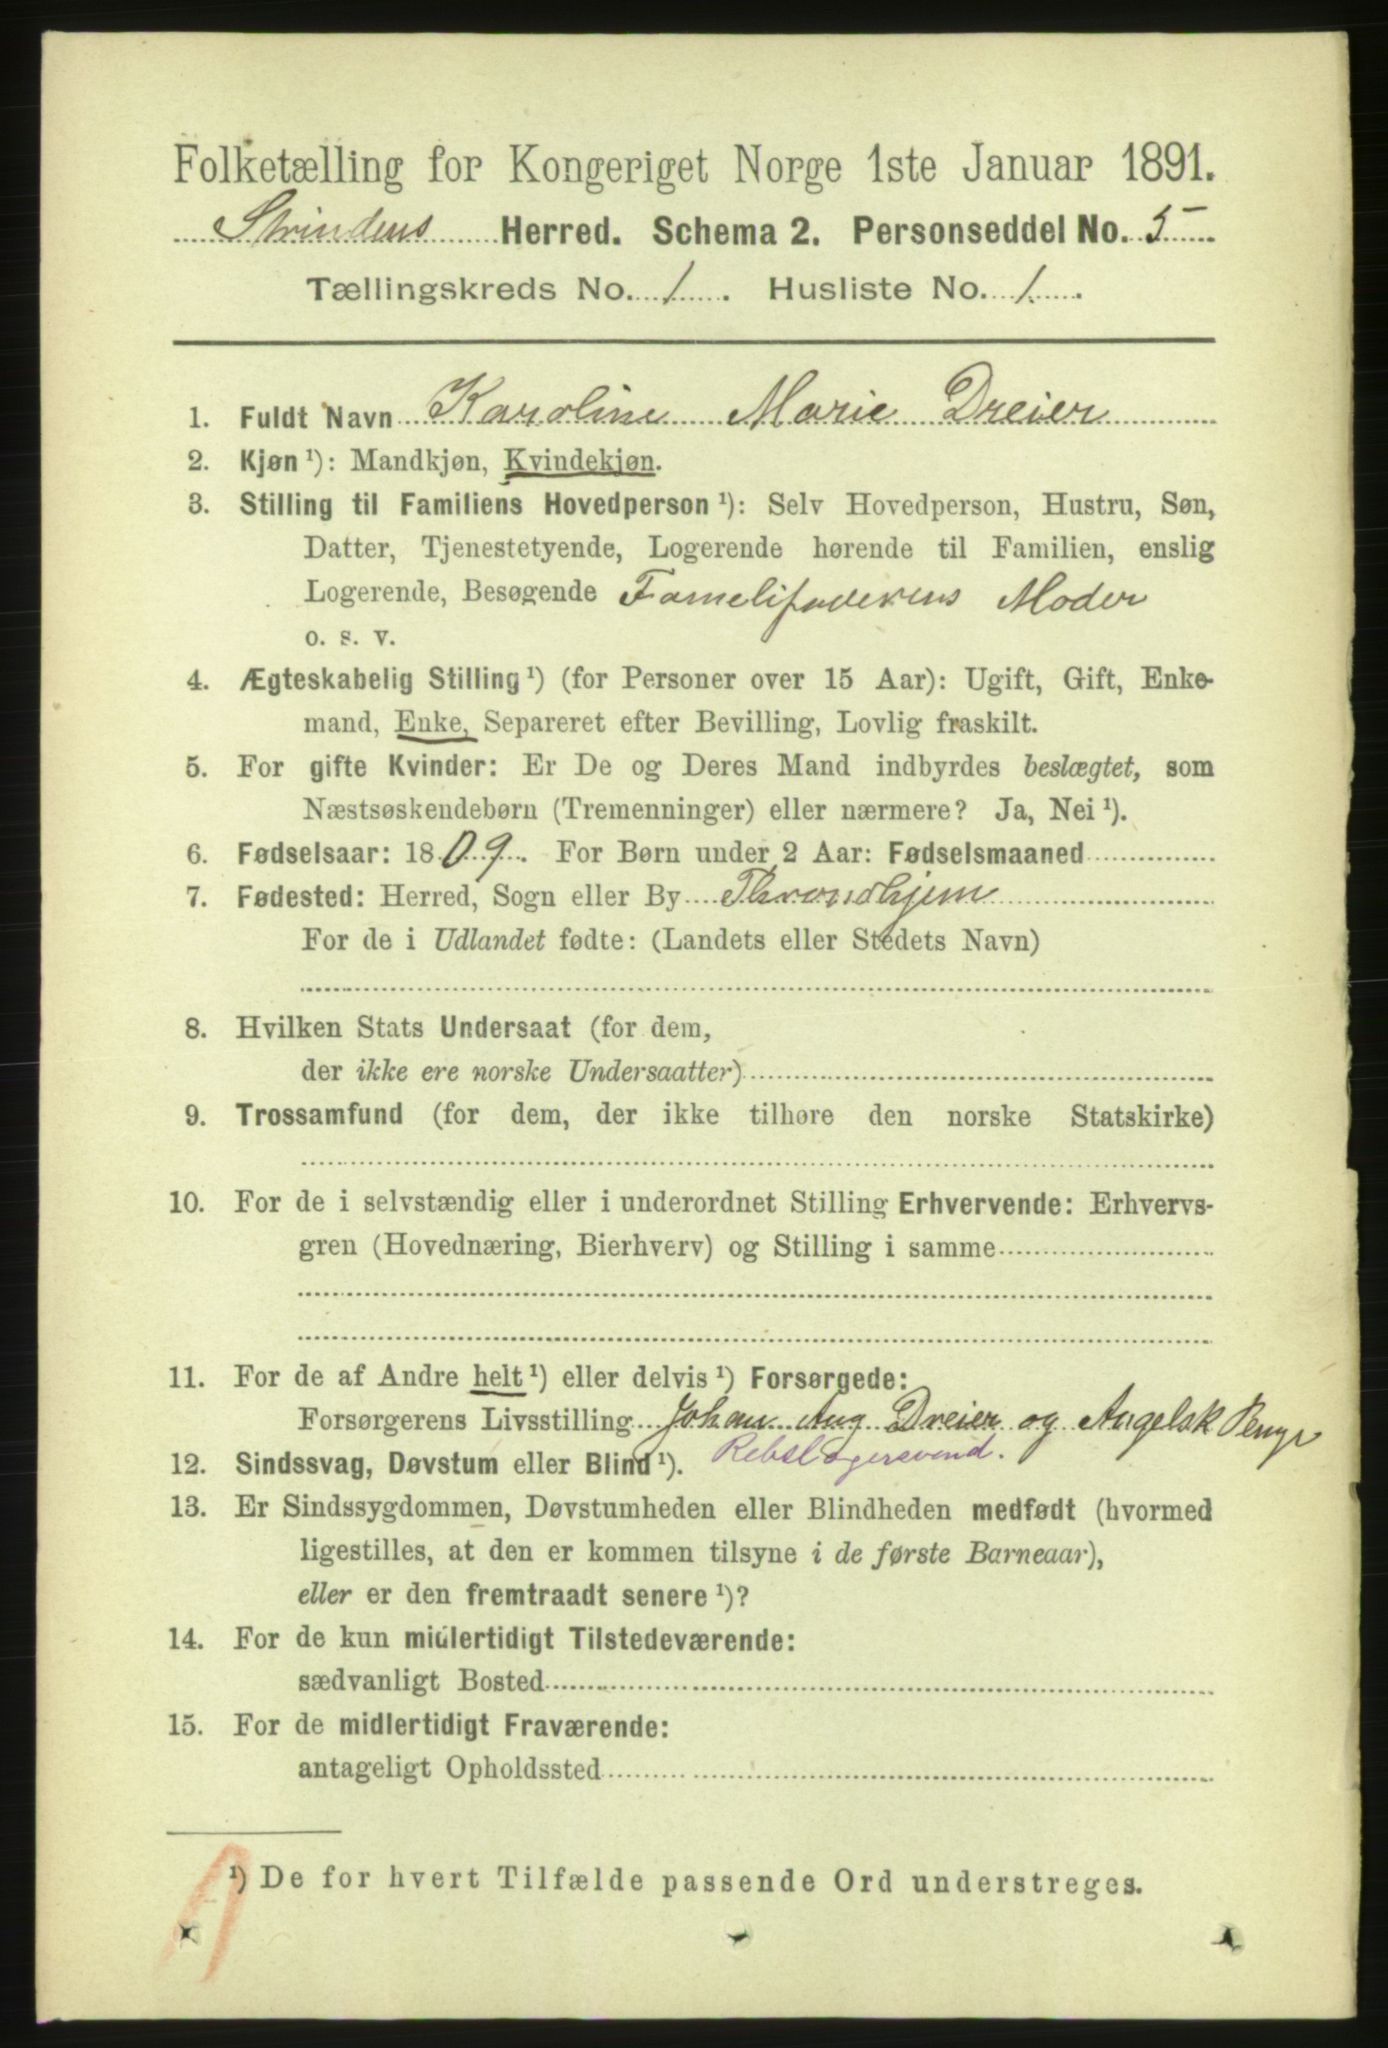 Folketælling for Kongeriget Norge 1ste Januar 1891.
Strindens Herred. Schema 2. Personseddel No. 5
Tællingskreds No. 1. Husliste No. 1.
1. Fuldt Navn Karoline Marie Dreier
2. Kjøn ¹): Mandkjøn, Kvindekjøn.
3. Stilling til Familiens Hovedperson ¹): Selv Hovedperson, Hustru, Søn,
Datter, Tjenestetyende, Logerende hørende til Familien, enslig
Logerende, Besøgende Famelifaderens Moder
o. s. v.
4. Ægteskabelig Stilling ¹) (for Personer over 15 Aar): Ugift, Gift, Enke-
mand, Enke, Separeret efter Bevilling, Lovlig fraskilt.
5. For gifte Kvinder: Er De og Deres Mand indbyrdes beslægtet, som
Næstsøskendebørn (Tremenninger) eller nærmere? Ja, Nei ¹).
6. Fødselsaar: 1809. For Børn under 2 Aar: Fødselsmaaned
7. Fødested: Herred, Sogn eller By Throndhjem
For de i Udlandet fødte: (Landets eller Stedets Navn)
8. Hvilken Stats Undersaat (for dem,
der ikke ere norske Undersaatter)
9. Trossamfund (for dem, der ikke tilhøre den norske Statskirke)
10. For de i selvstændig eller i underordnet Stilling Erhvervende: Erhvervs-
gren (Hovednæring, Bierhverv) og Stilling i samme
11. For de af Andre helt ¹) eller delvis ¹) Forsørgede:
Forsørgerens Livsstilling Johan Aug Dreier og Angelsk
Rebslagersvend.
12. Sindssvag, Døvstum eller Blind ¹).
13. Er Sindssygdommen, Døvstumheden eller Blindheden medfødt (hvormed
ligestilles, at den er kommen tilsyne i de første Barneaar),
eller er den fremtraadt senere ¹)?
14. For de kun midlertidigt Tilstedeværende:
sædvanligt Bosted
15. For de midlertidigt Fraværende:
antageligt Opholdssted
¹) De for hvert Tilfælde passende Ord understreges.